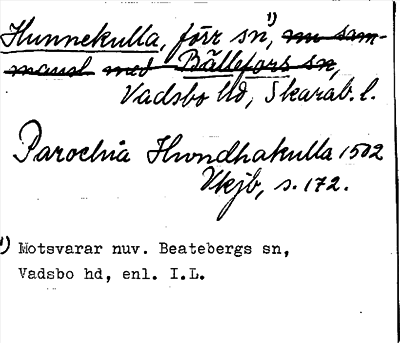 Hunnekulla, förr sn¹), nu sam-
mansl med Bällefors sn,
Vadsbo hd, Skarab. l.
Parochia Hwndhakulla 1502
Vkjb, s. 172.
¹) Motsvarar nuv. Beatebergs sn,
Vadsbo hd, enl. I.L.